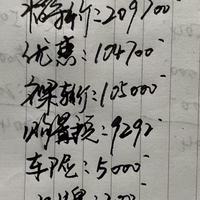 指导价:209700
优惠:104700
裸车价:105000
购置税:9292
车险:5000